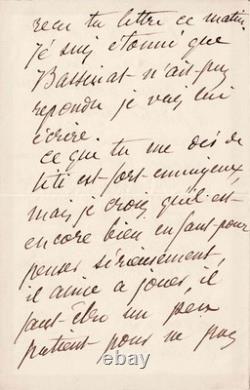 recu ta lettre ce matin
Je suis étonné que
Bassinat n'ait pas
repondu je vais lui
écrire.
Ce que tu me dis de
titi est fort ennuyeux,
mais je crois qu'il est
encore bien enfant pour
penser sérieusement,
il aime a jouer, il
faut être un peu
patient pour ne pas
© ebay